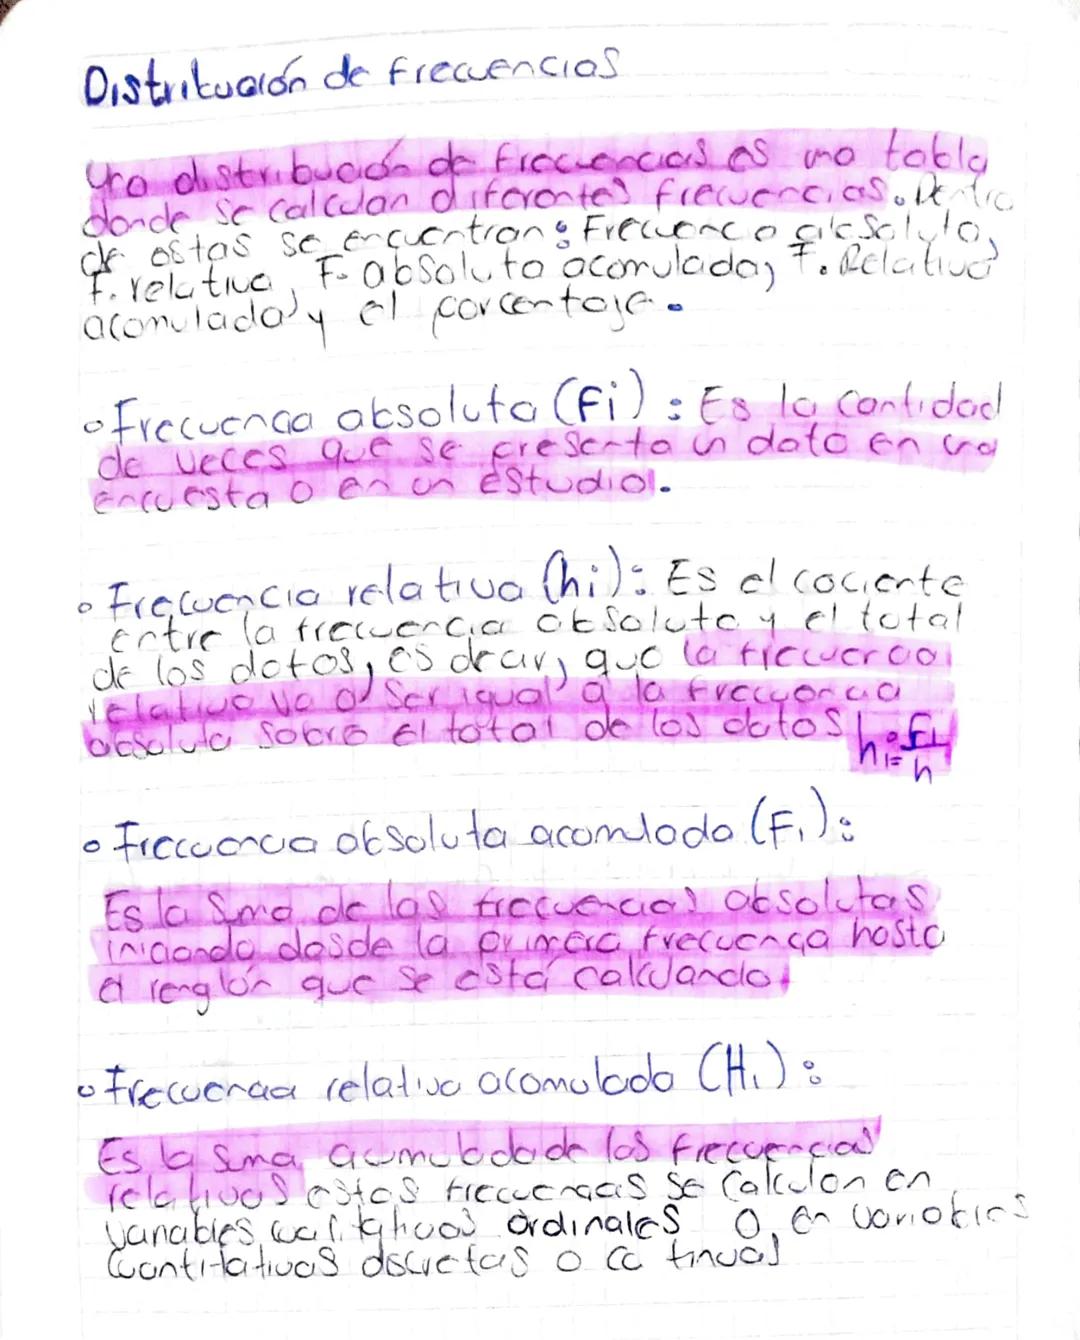 Distribución de frecuencias
Una distribución de frecuencias es una tabla
donde se calculan diferentes frecuencias. Dentro
de estas se encuentran: Frecuencia absoluta,
F. relativa, F. absoluta acomulada, F. Relativa
acomulada y el porcentaje.
• Frecuencia absoluta (fi): Es la cantidad
de veces que se presenta un dato en una
encuesta o en un estudio.
• Frecuencia relativa (hi): Es el cociente
entre la frecuencia absoluta y el total
de los datos, es decir, que la frecuencia
relativa va a ser igual a la frecuencia
absoluta sobre el total de los datos hi = fi/n
• Frecuencia absoluta acomulada (Fi):
Es la suma de las frecuencias absolutas
iniciando desde la primera frecuencia hasta
el renglón que se está calculando.
• Frecuencia relativa acomulada (Hi):
Es la suma acumulada de las frecuencias
relativas estas frecuencias se calculan en
variables cualitativas ordinales o en variables
cuantitativas discretas o continuas